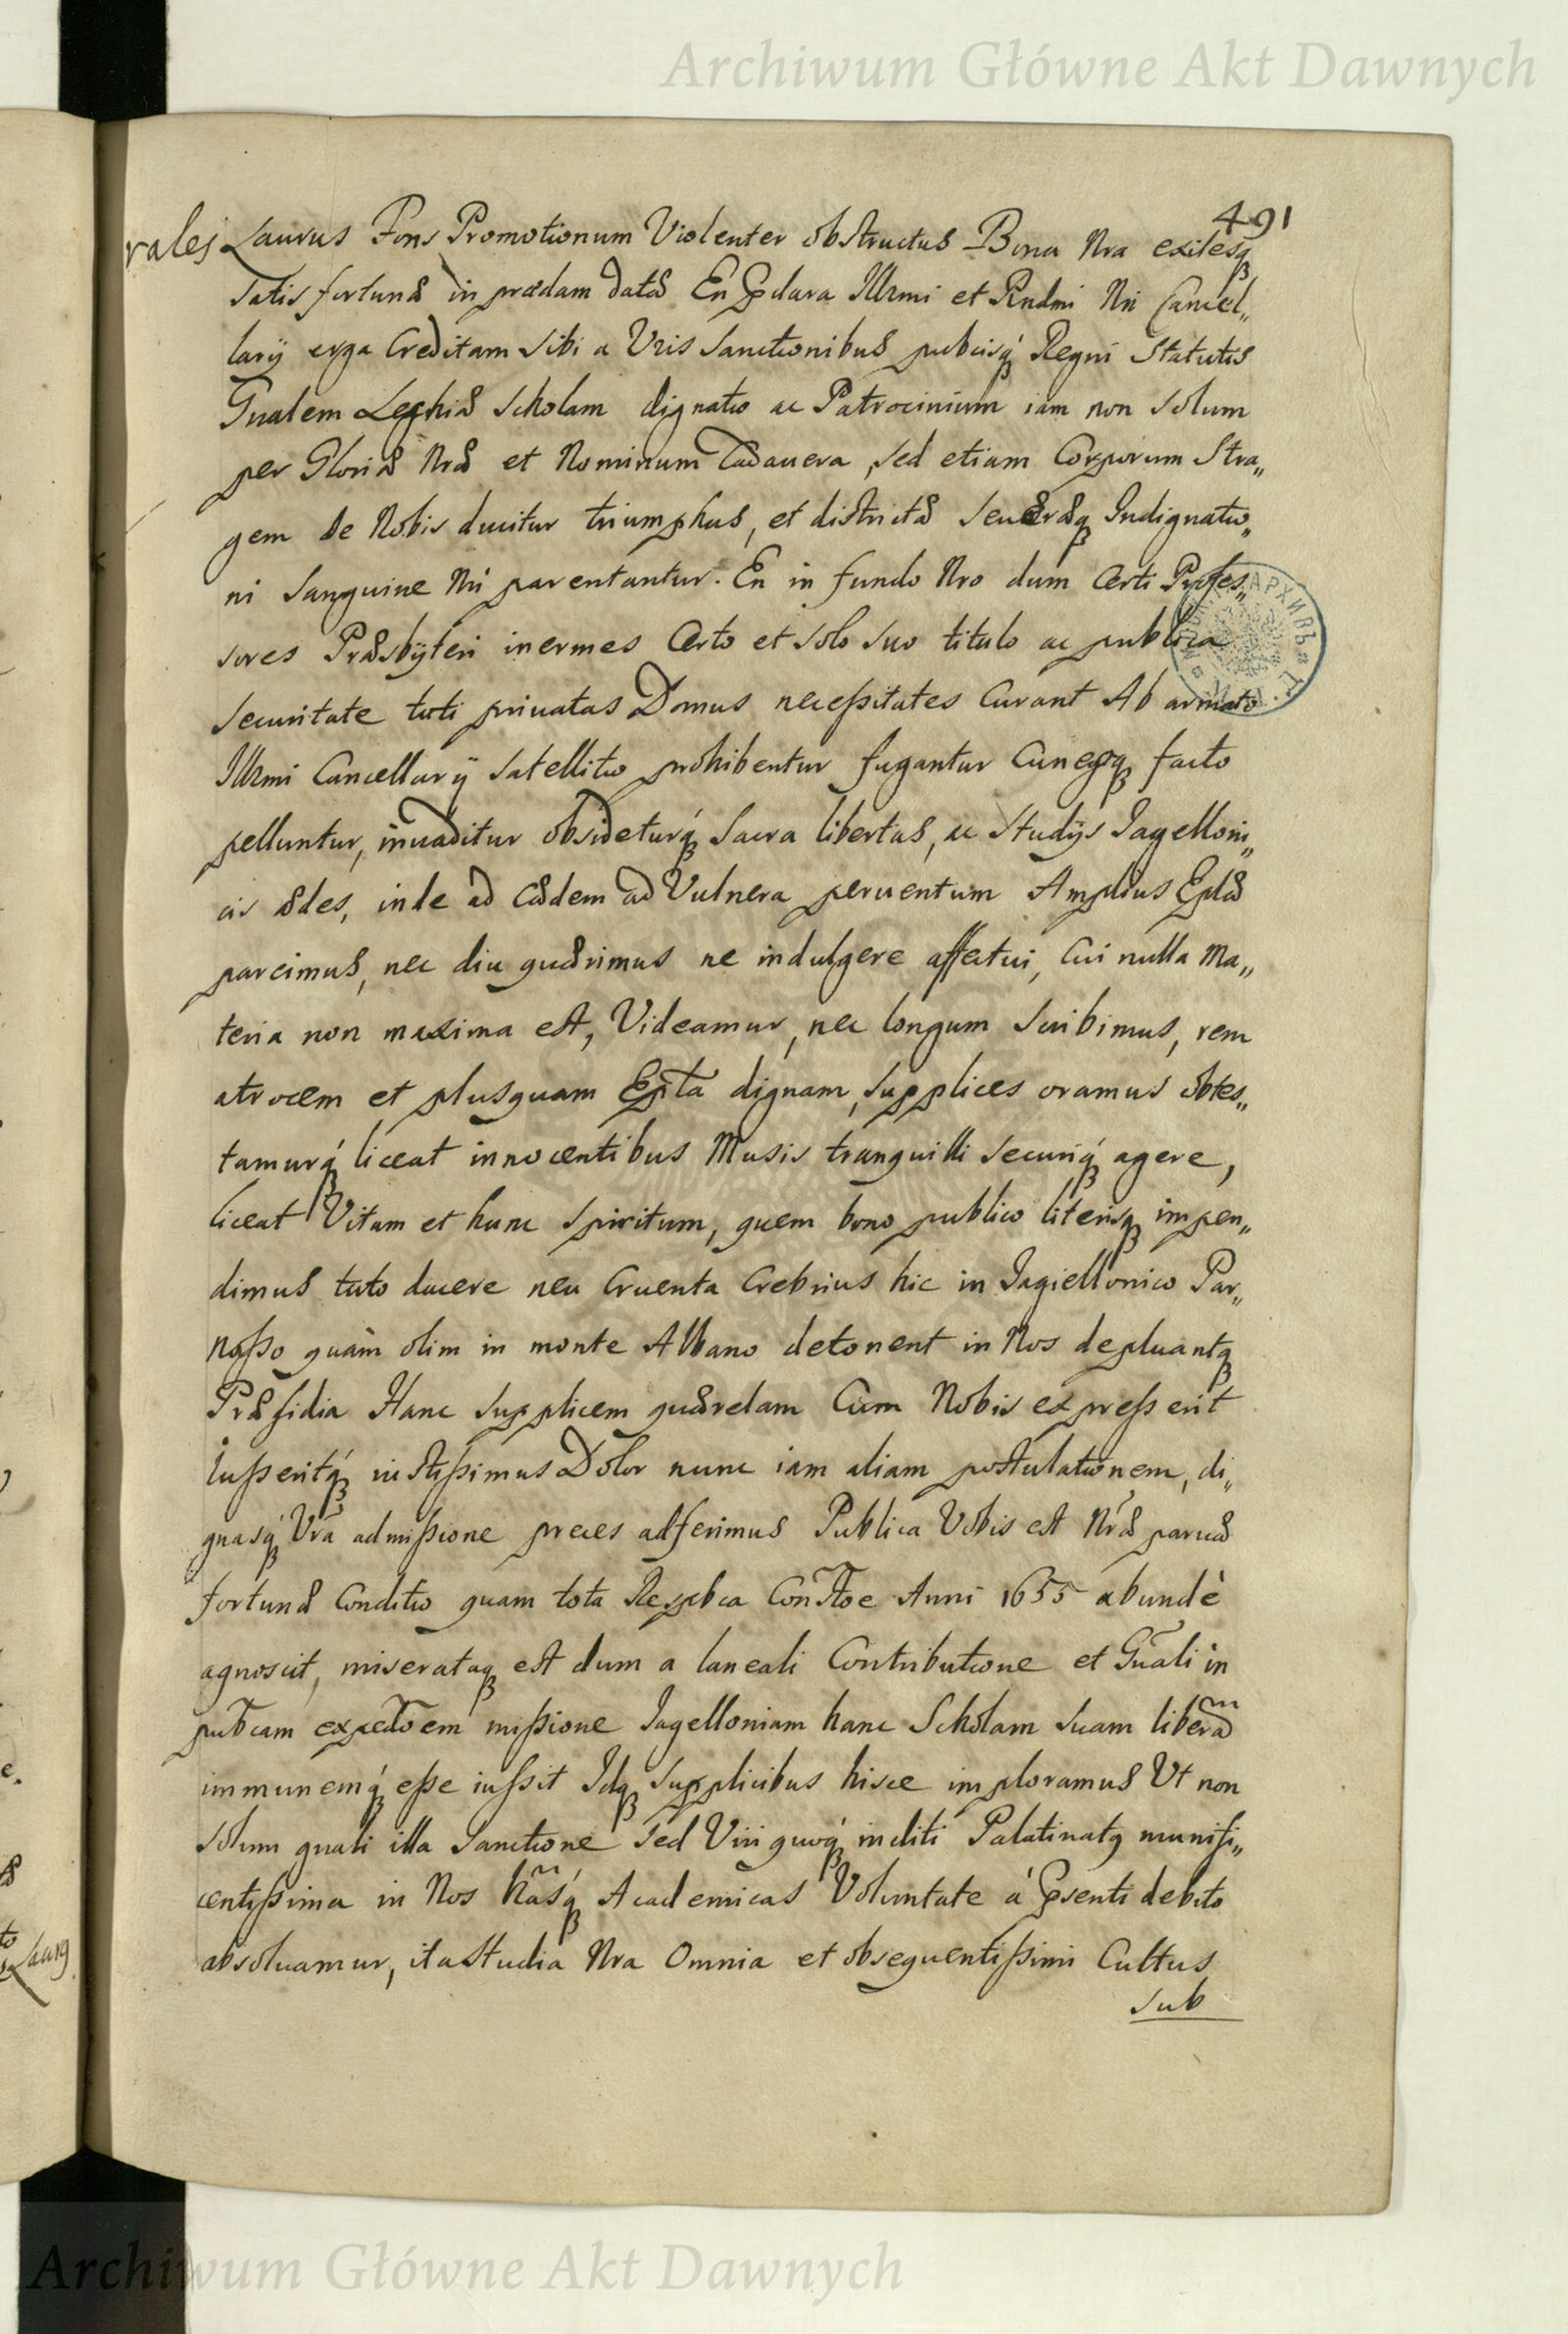 Archiwum Główne Akt Dawnych
491
rales Laurus Fons Promotionum Violenter obstructus Bona Nra exilesq
satis fortunæ in prædam datæ En Pclara Illrmi et Rndmi Nri Cancel„
larÿ erga Creditam sibi a Vris Sanctionibus pubcisq́ Regni Statutis
Gnalem Lechiæ Scholam dignatio ac Patrocinium iam non solum
per Gloriæ Nræ et Nominum Cadauera, sed etiam Corporum Stra„
gem de Nobis ducitur triumphus, et districtæ seueræq Indignatio„
ni Sanguine Nri parentantur. En in fundo Nro dum Certi Profes„
sores Præsbÿteri inermes Certo et solo suo titulo ac publica
securitate tuti priuatas Domus necessitates Curant Ab armato
Illrmi Cancellarÿ satellitio prohibentur fugantur Cuneoq facto
pelluntur, inuaditur obsideturq́ Sacra libertas, ac Studijs Jagelloni„
cis ædes, inde ad Cædem ad Vulnera peruentum Amplius Eplæ
parcimus, nec diu quærimus ne indulgere affectui, Cui nulla Ma„
teria non maxima est, Videamur, nec longum scribimus, rem
atrocem et plusquam Epla dignam, supplices oramus obtes„
tamurq́ liceat innocentibus Musis tranquilli securiq́ agere,
liceat Vitam et hunc spiritum, quem bono publico literisq impen„
dimus tuto ducere neu Cruenta Crebrius hic in Jagiellonico Par„
nasso quàm olim in monte Albano detonent in Nos depluantq
Præsidia Hanc supplicem quærelam Cum Nobis expresserit
Iusseritq́ iustissimus Dolor nunc iam aliam postulationem, di„
gnasq́ Vra admissione preces adferimus Publica Vobis est Nræ paruæ
fortunæ Conditio quam tota Respbca Constoe Anni 1655 abundè
agnoscit, miserataq est dum a laneali Contributione et Gnali in
pubcam expedoem missione Jagelloniam hanc Scholam suam liberã
immunemq́ esse iussit Idq supplicibus hisce imploramus Ut non
solum gnali illa Sanctione sed Viri quoq́ incliti Palatinatq munifi„
centissima in Nos Nrasq́ Academicas Voluntate á Psenti debito
absoluamur, ita Studia Nra Omnia et obsequentissimi Cultus
sub
Archiwum Główne Akt Dawnych